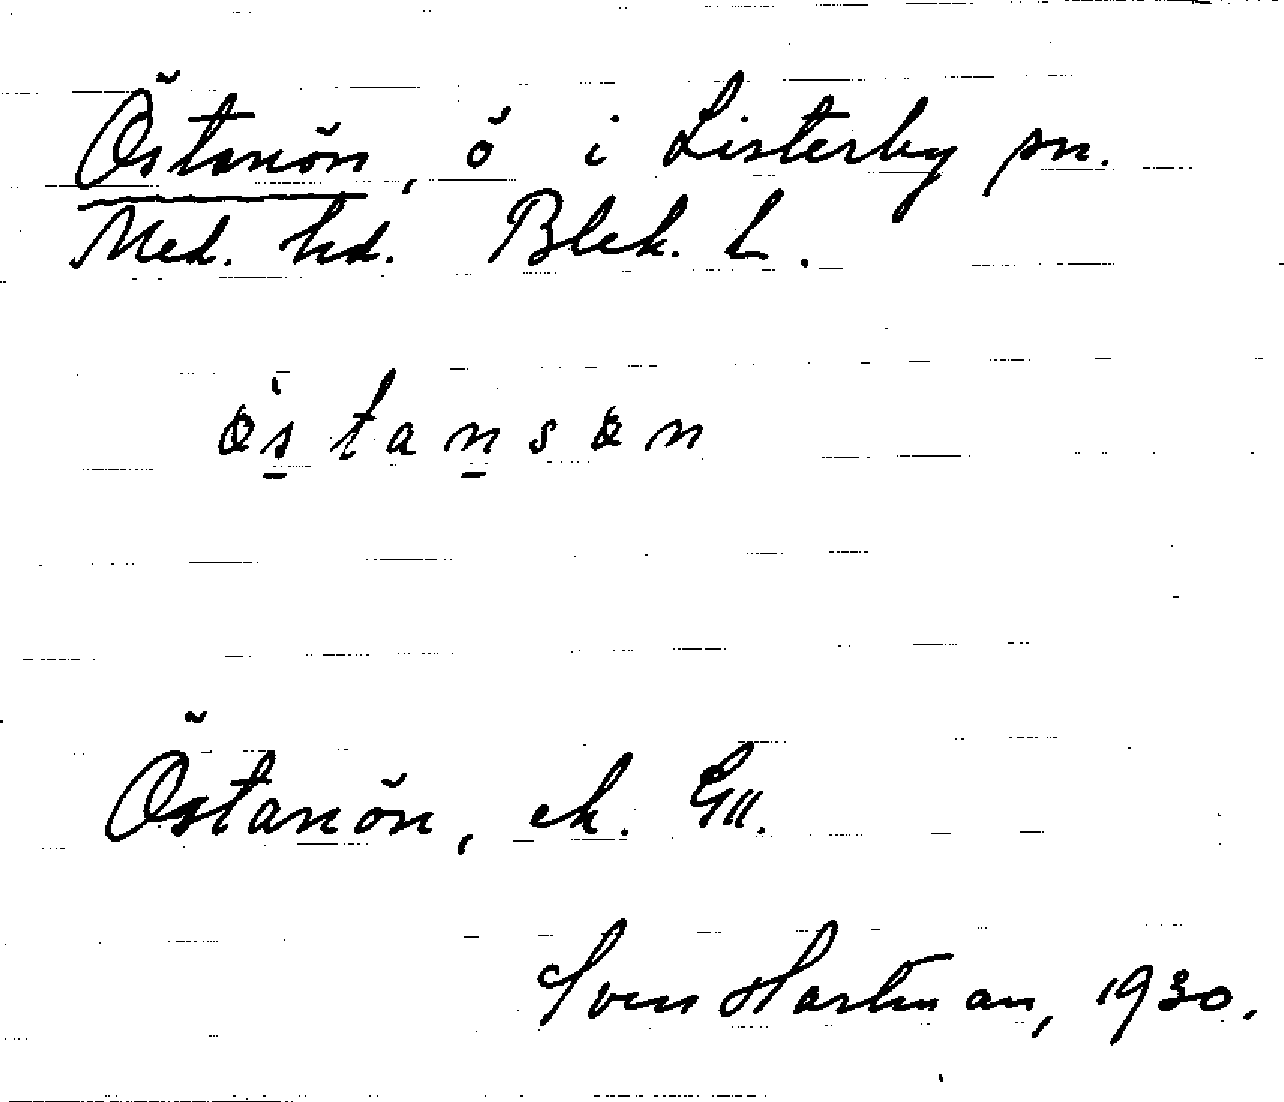 Östanön, ö i Listerby sn.
Med. hd. Blek. L.
östansön
Östanön, ek. GK.
Sven Hartman, 1930.